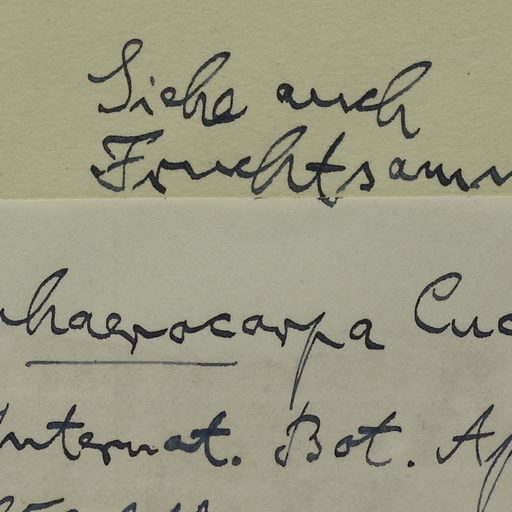 Siehe auch
Fruchtsamm
haerocarpa Cua
Internat. Bot. Ap